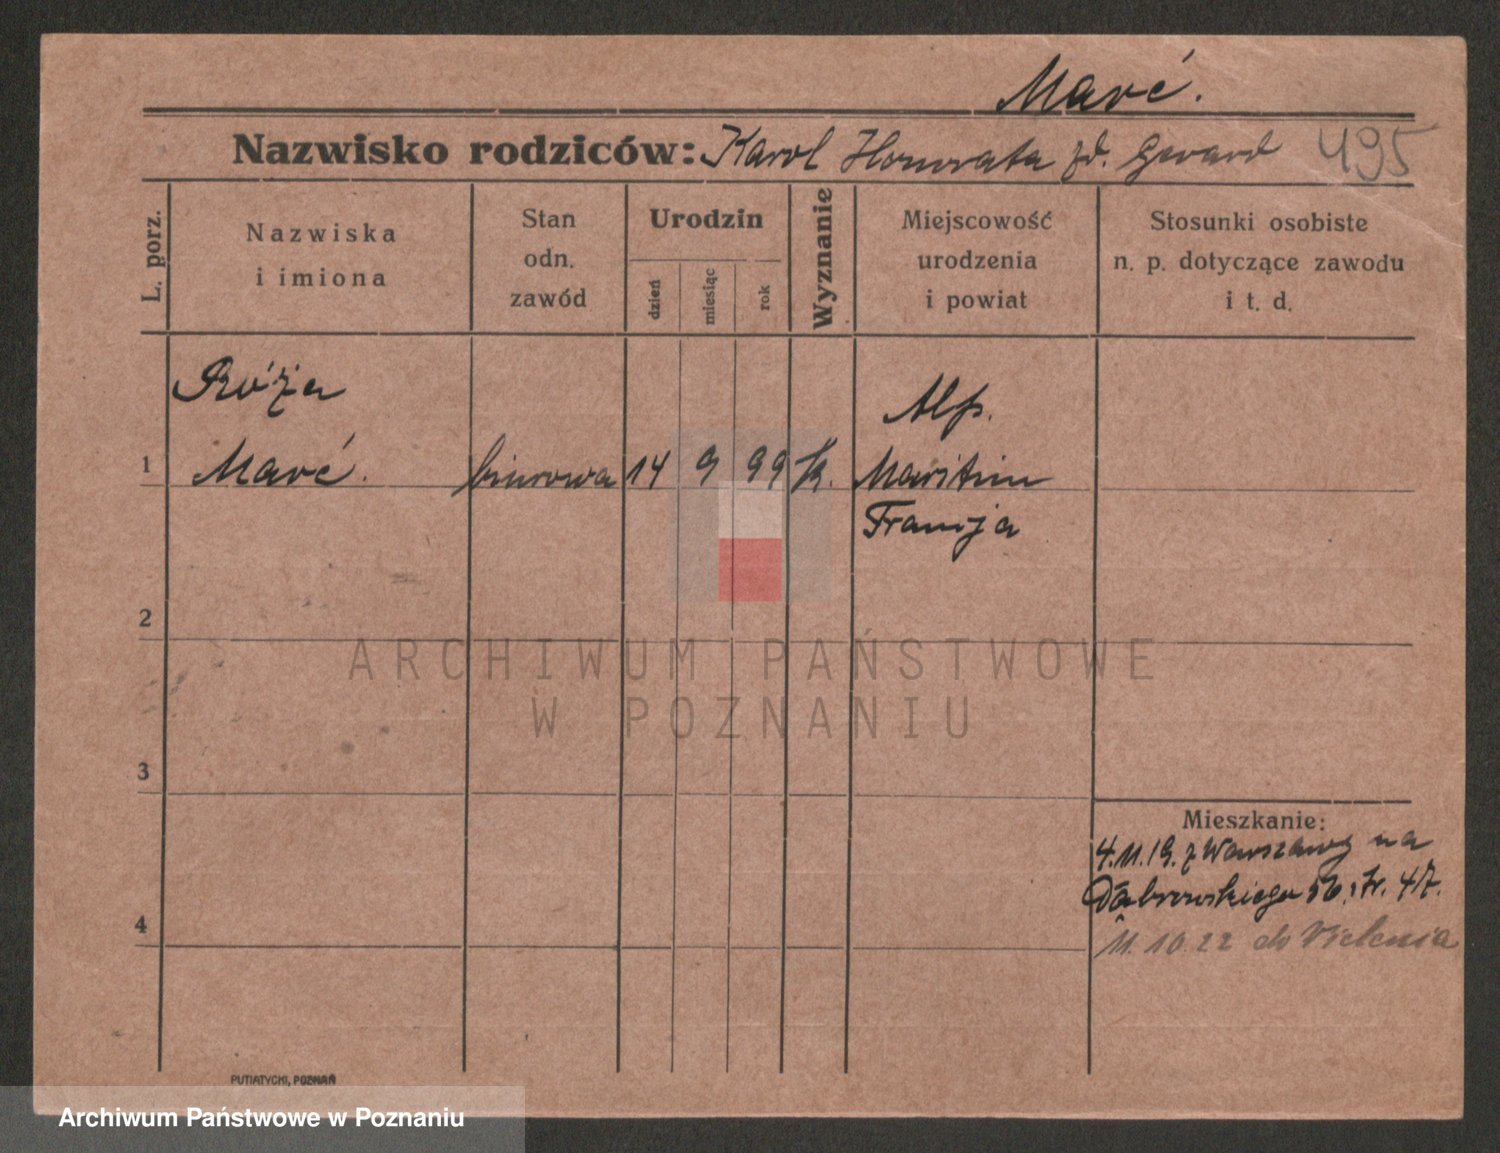 Maré.
Nazwisko rodziców: Karol Honorata zd. Gerard 495
L. porz.
Nazwiska
i imiona
Stan
odn.
zawód
Urodzin
dzień
miesiąc
rok
Wyznanie
Miejscowość
urodzenia
i powiat
Stosunki osobiste
n. p. dotyczące zawodu
i t. d.
Róża
Alp.
1 Maré. biurowa 14 9 99 k. Maritim
Francja
2
ARCHIWUM PAŃSTWOWE
W POZNANIU
3
Mieszkanie:
4.11.19. z Warszawy na
Dąbrowskiego 56. tr. 47.
4
11.10.22 do
PUTIATYCKI, POZNAŃ
Archiwum Państwowe w Poznaniu